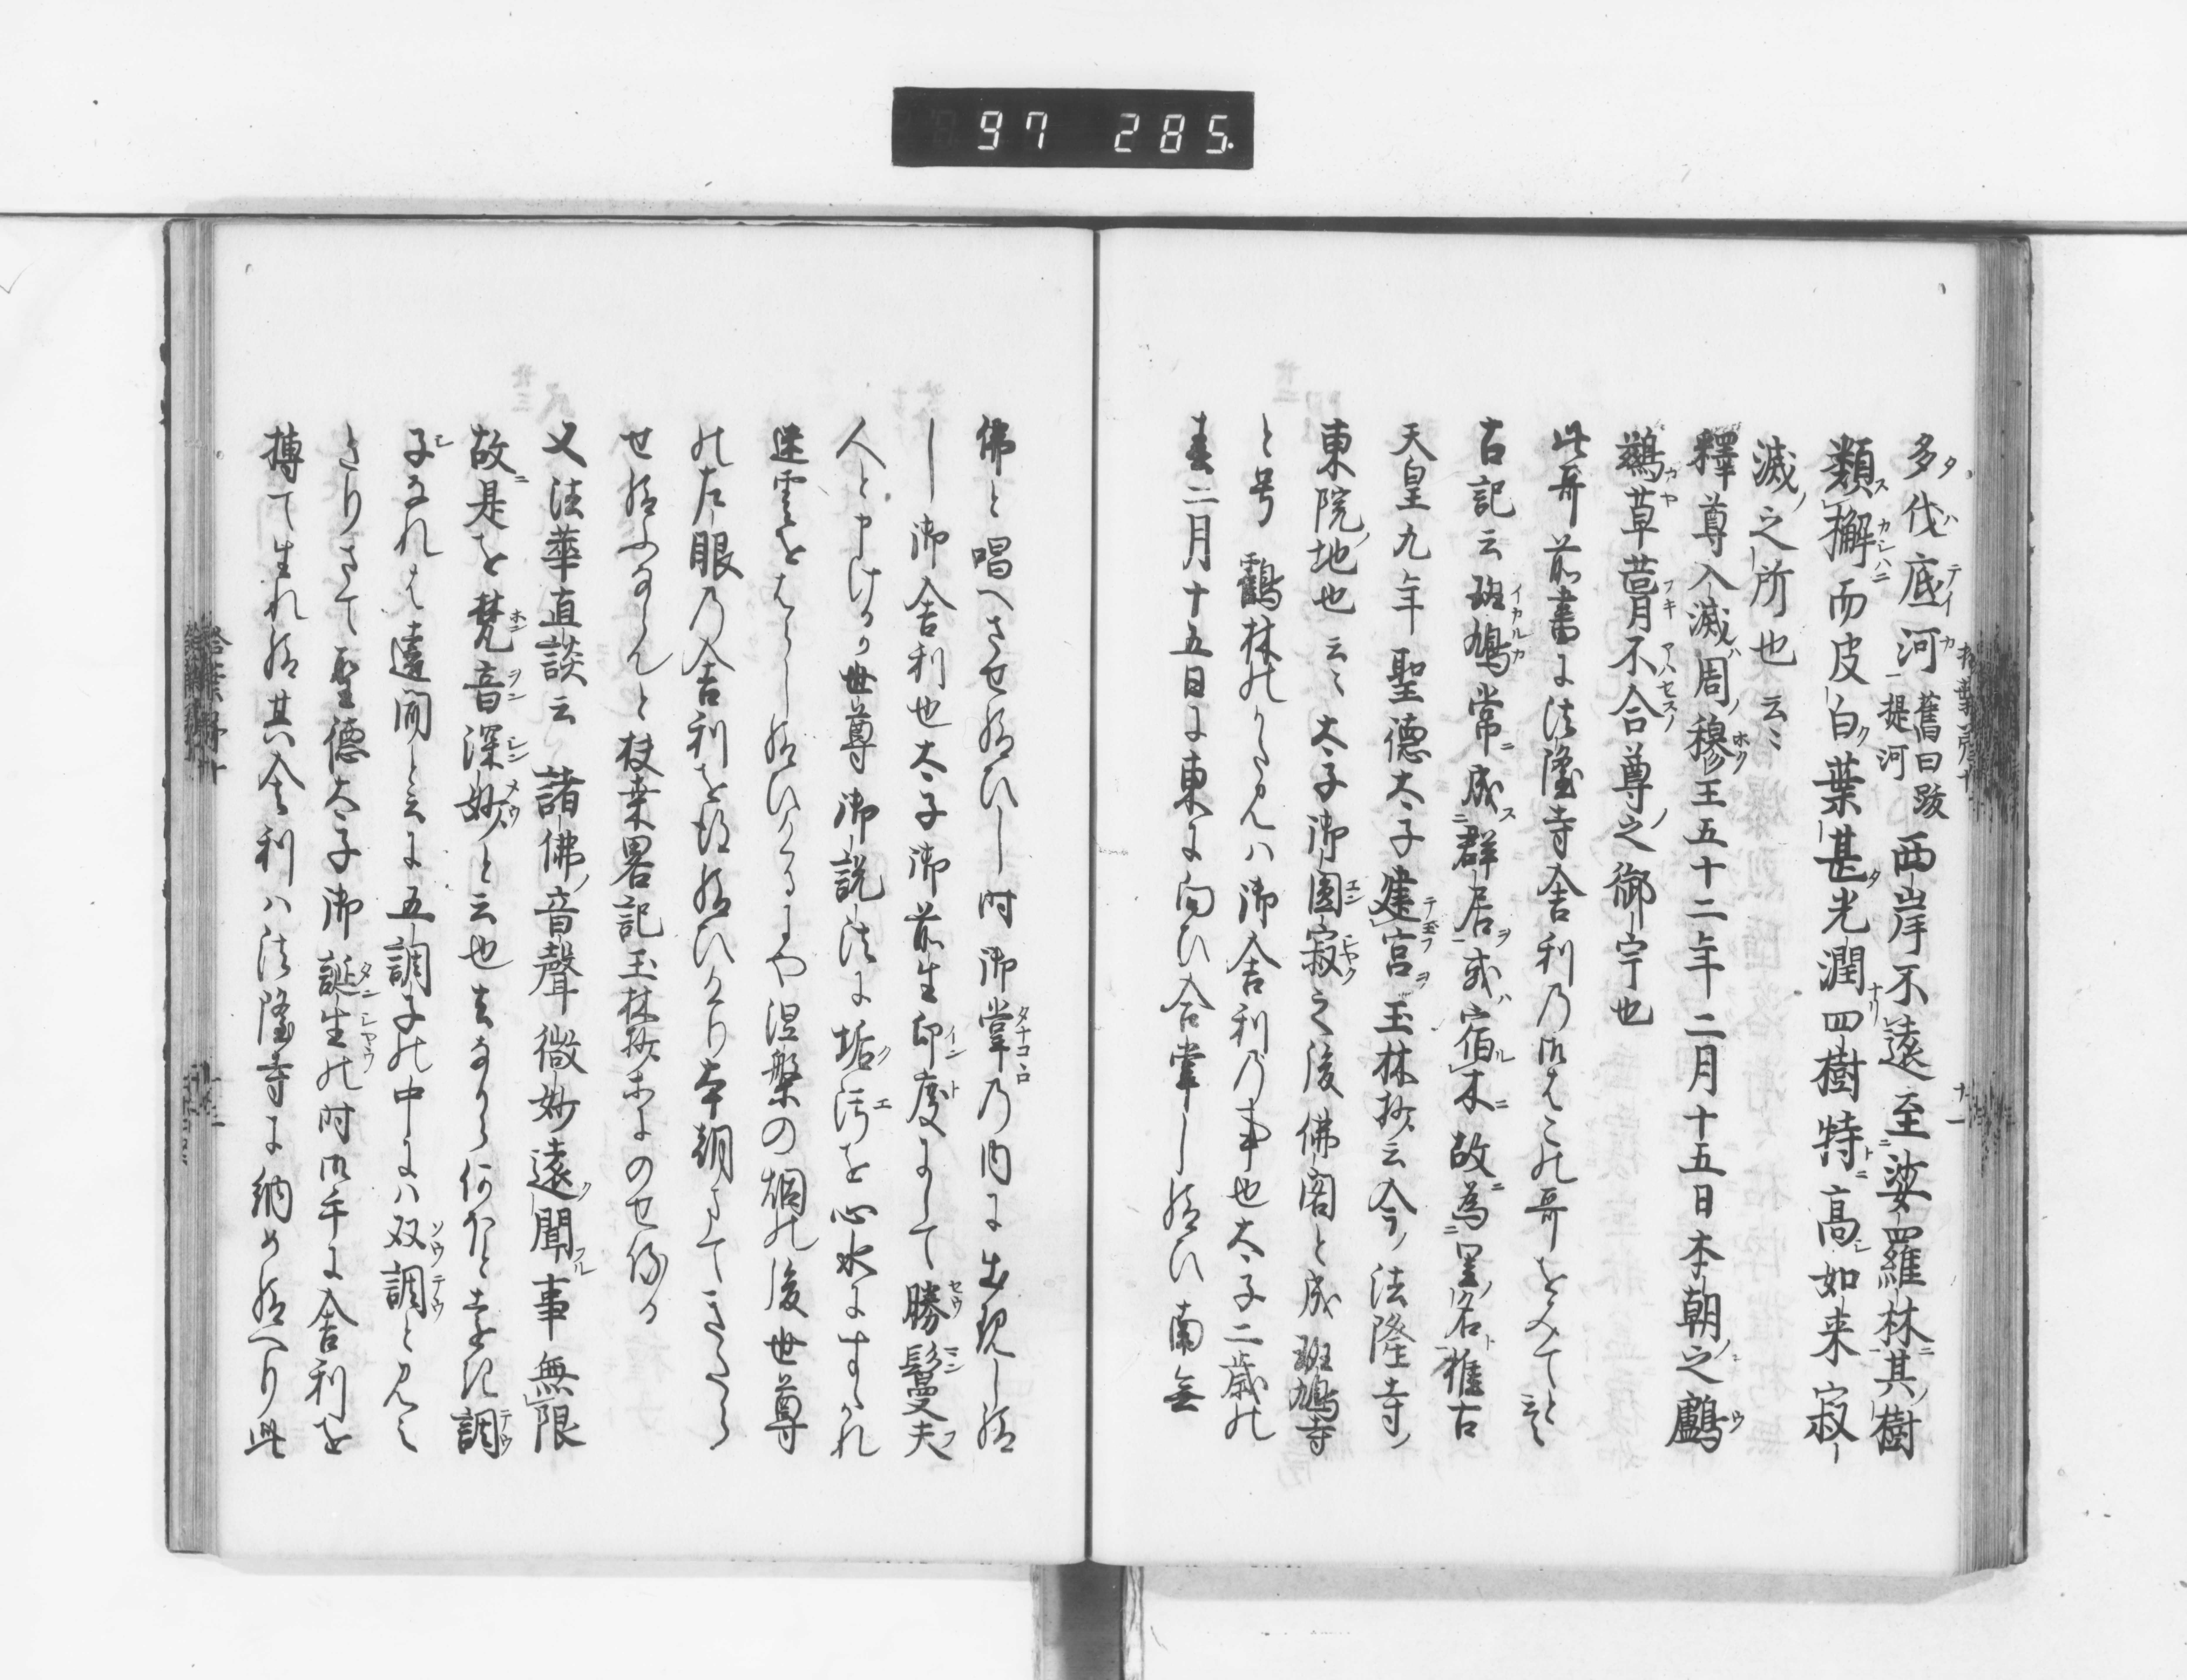 97 285
多伐底河 舊曰跋提河 西岸不遠至娑羅林其樹
類檞而皮白葉甚光潤四樹特高如来寂
滅之所也云々
釋尊入滅周穆王五十二年二月十五日本朝之鸕
鷀草葺不合尊之御宇也
此哥前書に法隆寺舎利の御はこの哥をみてと云々
古記云斑鳩常成群居或宿木故為里名推古
天皇九年聖徳太子建宮玉林抄云今ノ法隆寺ノ
東院ノ地也云々太子御園寂之後佛閣と成斑鳩寺
と号 鶴林のうたハ御舎利乃事也太子二歳の
春二月十五日に東に向ひ合掌し給ひ南無
佛と唱へさせ給ひし時御掌乃内に出現し給
し御舎利也太子御前生印度にして勝鬘夫
人と申けるか世尊御説法に垢汚を心水にすゝれ
迷雲をはらし給ひけるにや涅槃の烟の後世尊
の左眼乃舎利を得給ひけり本朝まてきたら
せ給ふならんと枝葉畧記玉林抄等にのせ侍る
又法華直談云諸佛ノ音聲微妙遠聞事無限
故是を梵音深妙と云也去なから何たと遠記調
子なれは遠聞と云に五調子の中にハ双調と見え
たりさて聖徳太子御誕生の時御手に舎利を
摶て生れ給其舎利ハ法隆寺に納め給へり此